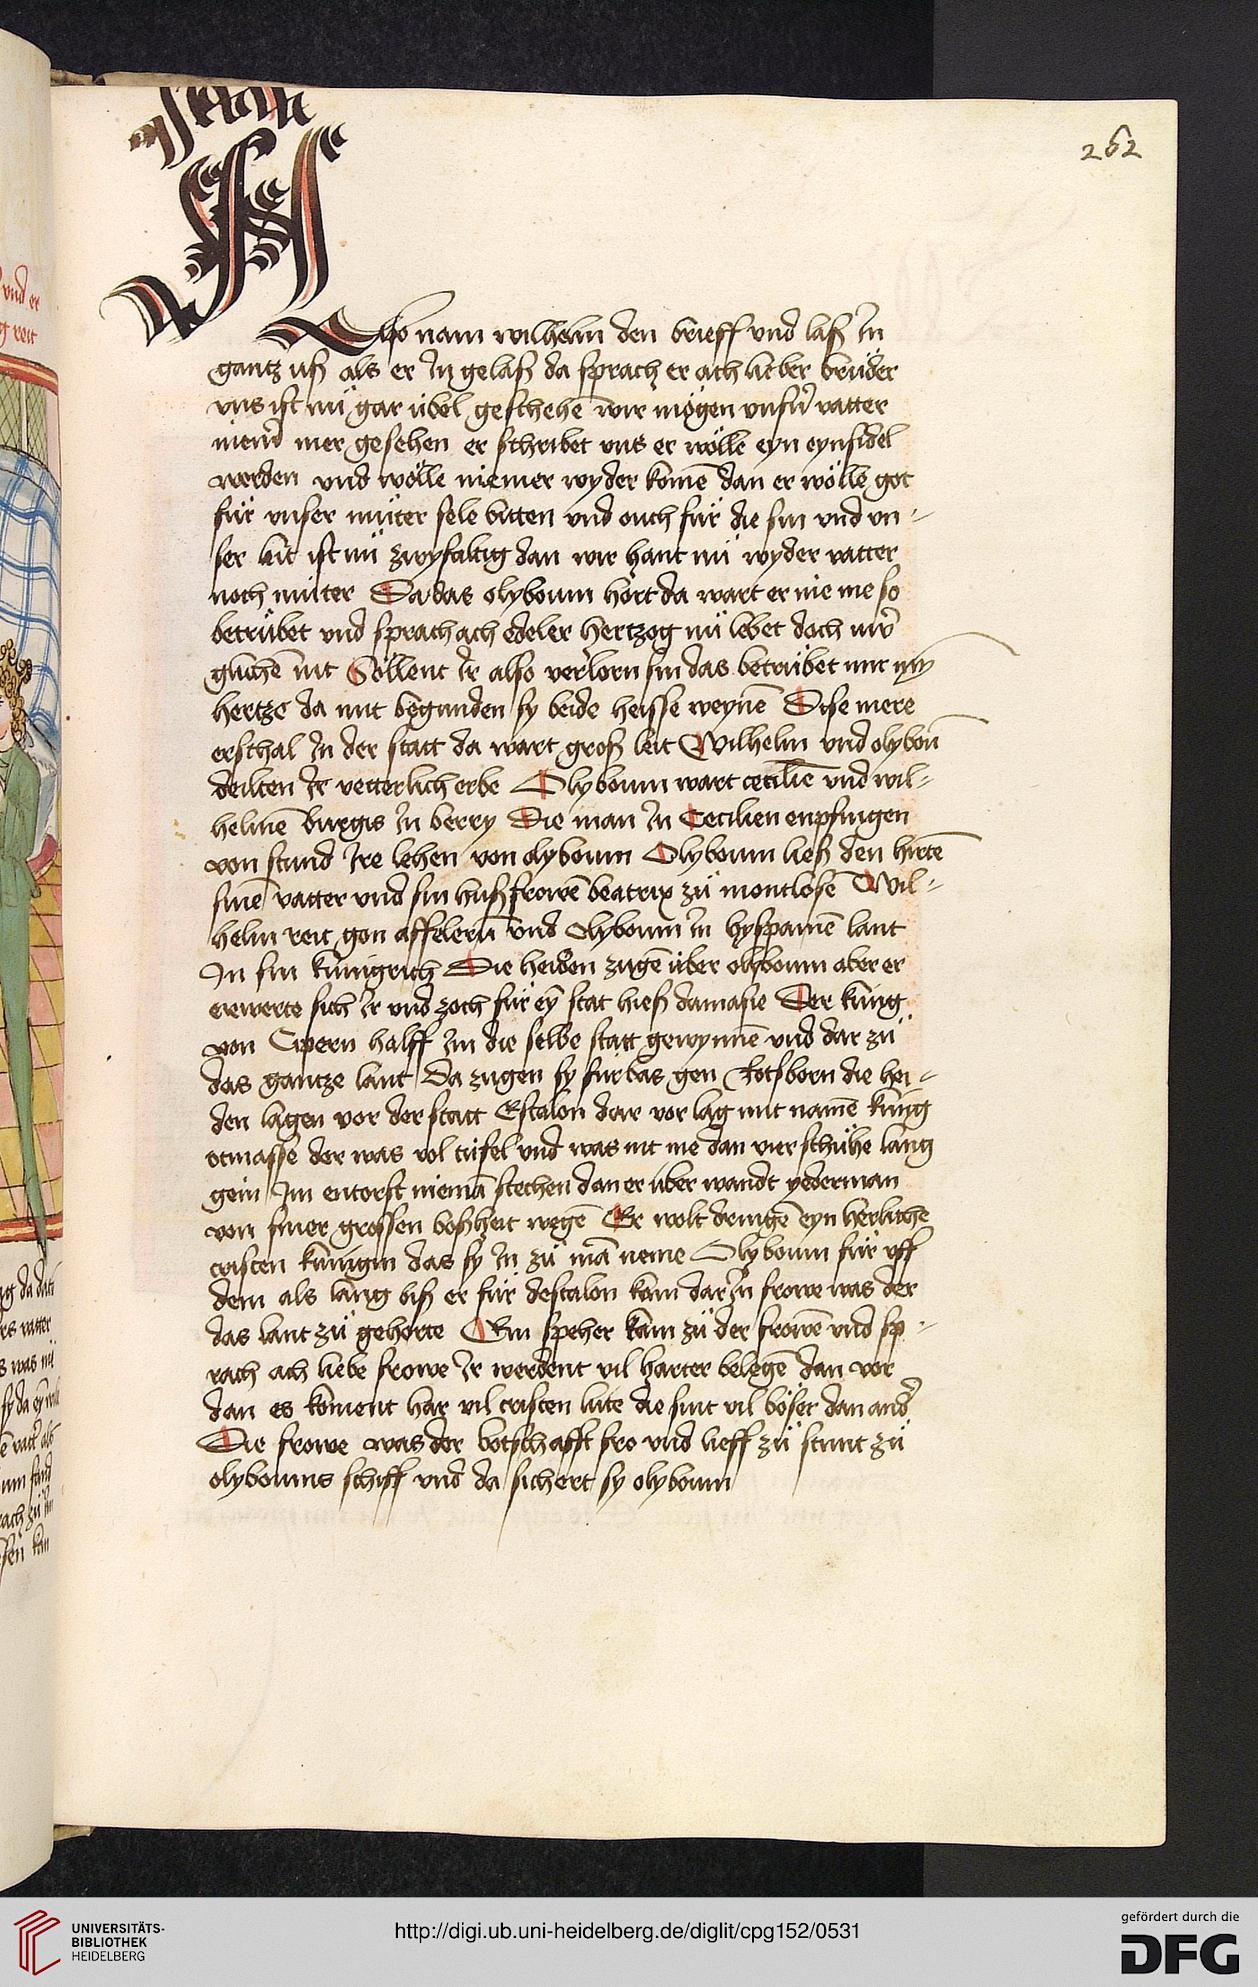 262
Also nam wilhelm den brieff vnd laß In
gantz uß als er In gelaß da sprach er ach lieber brüder
vns ist nü gar übel geschehē wir mögen vnsn̄ vatter
niem̄ mer gesehen er schribet vns er wölle eyn eynsidel
werden vnd wölle niemer wyder komē dan er wölle got
für vnser müter sele bitten vnd ouch für die sin vnd vn-
ser leit ist nü zwyfaltig dan wir hant nü wyder vatter
noch müter Da das olyboum hört da wart er nie me so
betrübet vnd sprach ach edeler hertzog nü lebet doch uwr̄
glichē nit Söllent Ir also verlorn sin das betrübet mir myn
hertze da mit begunden sy beide heisse weynē Dise mere
erschal In der statt da wart groß leit Wilhelm vnd olyboū
deilten Ir vetterlich erbe Olyboum wart ceciliē vnd wil-
helmē burgis In berry Die man In Cecilien enpfingen
von stund Ire lehen von olyboum Olyboum ließ den hirtē
sinē vatter vnd sin hußfrowē beatrix zü montlosē Wil-
helm reit gon affelern vnd Olyboum In hyspaniē lant
In sin künigrich Die heiden zugē über olyboum aber er
erwerte sich Ir vnd zoch für eȳ stat hieß damasie Der küng
von Cipern halff Im die selbe statt gewynnē vnd dar zü
das gantze lant Da zugen sy fürbas gen Rotsborn die hei-
den lagen vor der statt Estalon dar vor lag mit namē küng
otmasse der was vol tüfel vnd was nit me dan vier schühe lang
gein Im entorst niemā stechen dan er über wandt yederman
von siner grossen boßheit wegē Er wolt dringē eyn herlichē
cristen künigin das sy In zü mā neme Olyboum für vff
dem als lang biß er für destalon kam dar In frowe was der
das lant zü gehorte Ein speher kam zü der frowē vnd sp-
rach ach liebe frowe Ir werdent vil harter belegē dan vor
dan es koment har vil cristen lüte die sint vil böser dan and̄
Die frowe was der botschafft fro vnd lieff zü stunt zü
olyboums schiff vnd da sichert sy olyboum
UNIVERSITÄTS-
BIBLIOTHEK
HEIDELBERG
http://digi.ub.uni-heidelberg.de/diglit/cpg152/0531
gefördert durch die
DFG